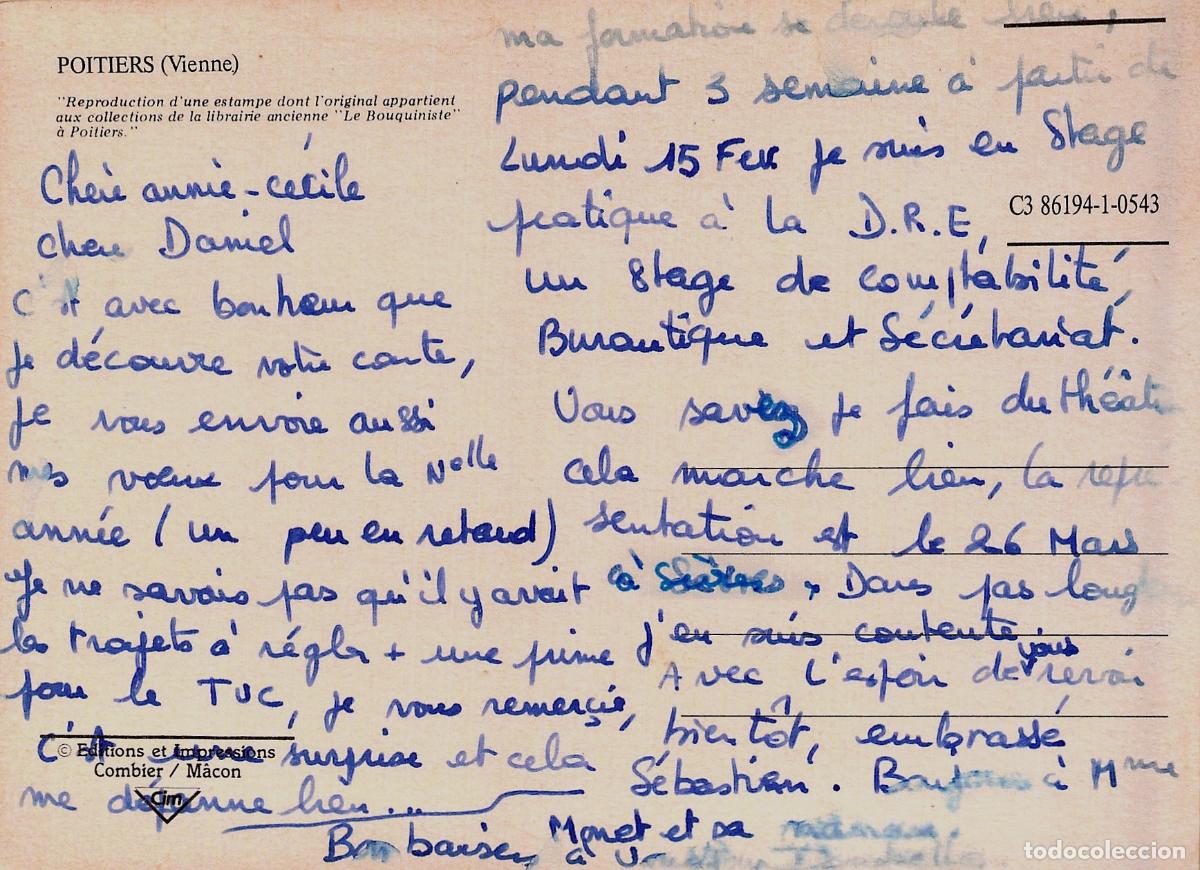 POITIERS (Vienne)
"Reproduction d'une estampe dont l'original appartient
aux collections de la librairie ancienne "Le Bouquiniste"
à Poitiers."
Chère annie-cécile
cher Daniel
C'est avec bonheur que
je découvre votre carte,
je vous envoie aussi
mes voeux pour la Nelle
année (un peu en retard)
Je ne savais pas qu'il y avait
les trajets à régler + une prime
pour le TUC, je vous remercie,
C'est une surprise et cela
me dépanne bien...
© Editions et Impressions
Combier / Mâcon
Cim
ma formation se déroule bien,
pendant 3 semaine à partir de
Lundi 15 Fev je suis en Stage
pratique à la D.R.E,
un Stage de comptabilité,
Burautique et Sécrétariat.
Vous savez je fais du théât
cela marche bien, la repré
sentation est le 26 Mars
à . Dans pas long
j'en suis contente
Avec l'espoir de vous revoir
bientôt, embrassé
Sébastien. Bonjour à Mme
Monet et sa
Bon baisers à
C3 86194-1-0543
todocoleccion